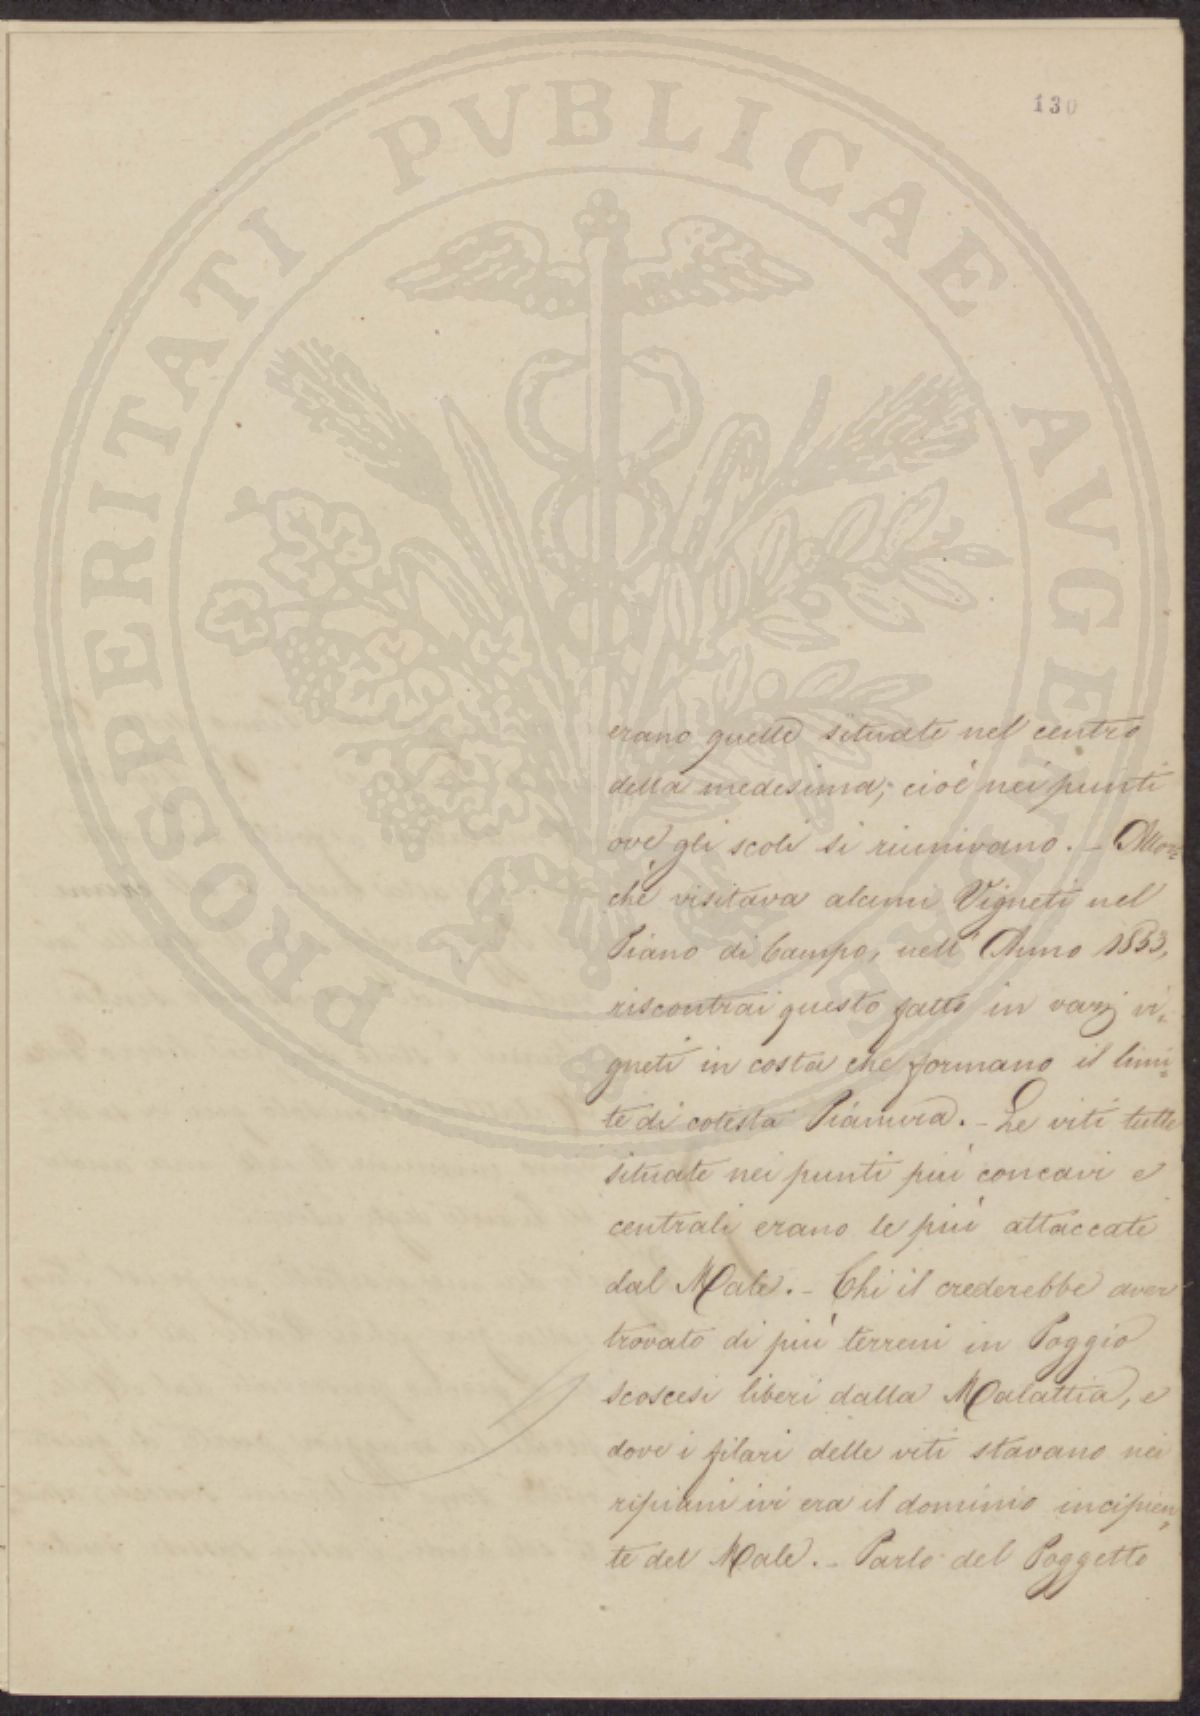 130
PROSPERITATI PUBLICAE AVGENDAE
erano quelle situate nel centro
della medesima; cioè nei punti
ove gli scoli si riunivano. _ Allor=
chè visitava alcuni Vigneti nel
Piano di Campo, nell' Anno 1853,
riscontrai questo fatto in varj vi=
gneti in costa che formano il limi=
te di cotesta Pianura. - Le viti tutte
situate nei punti più concavi e
centrali erano le più attaccate
dal Male. - Chi il crederebbe aver
trovato di più terreni in Poggio
scoscesi liberi dalla Malattia, e
dove i filari delle viti stavano nei
ripiani ivi era il dominio incipien=
te del Male. _ Parlo del Poggetto